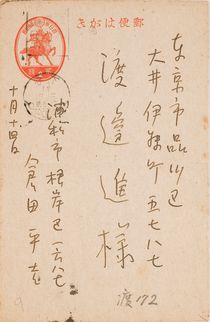 郵便はがき
東京市品川区
大井伊藤町五七八七
渡邊進様
浦和市根岸区一六八七
倉田平吉
十月十四日
渡172